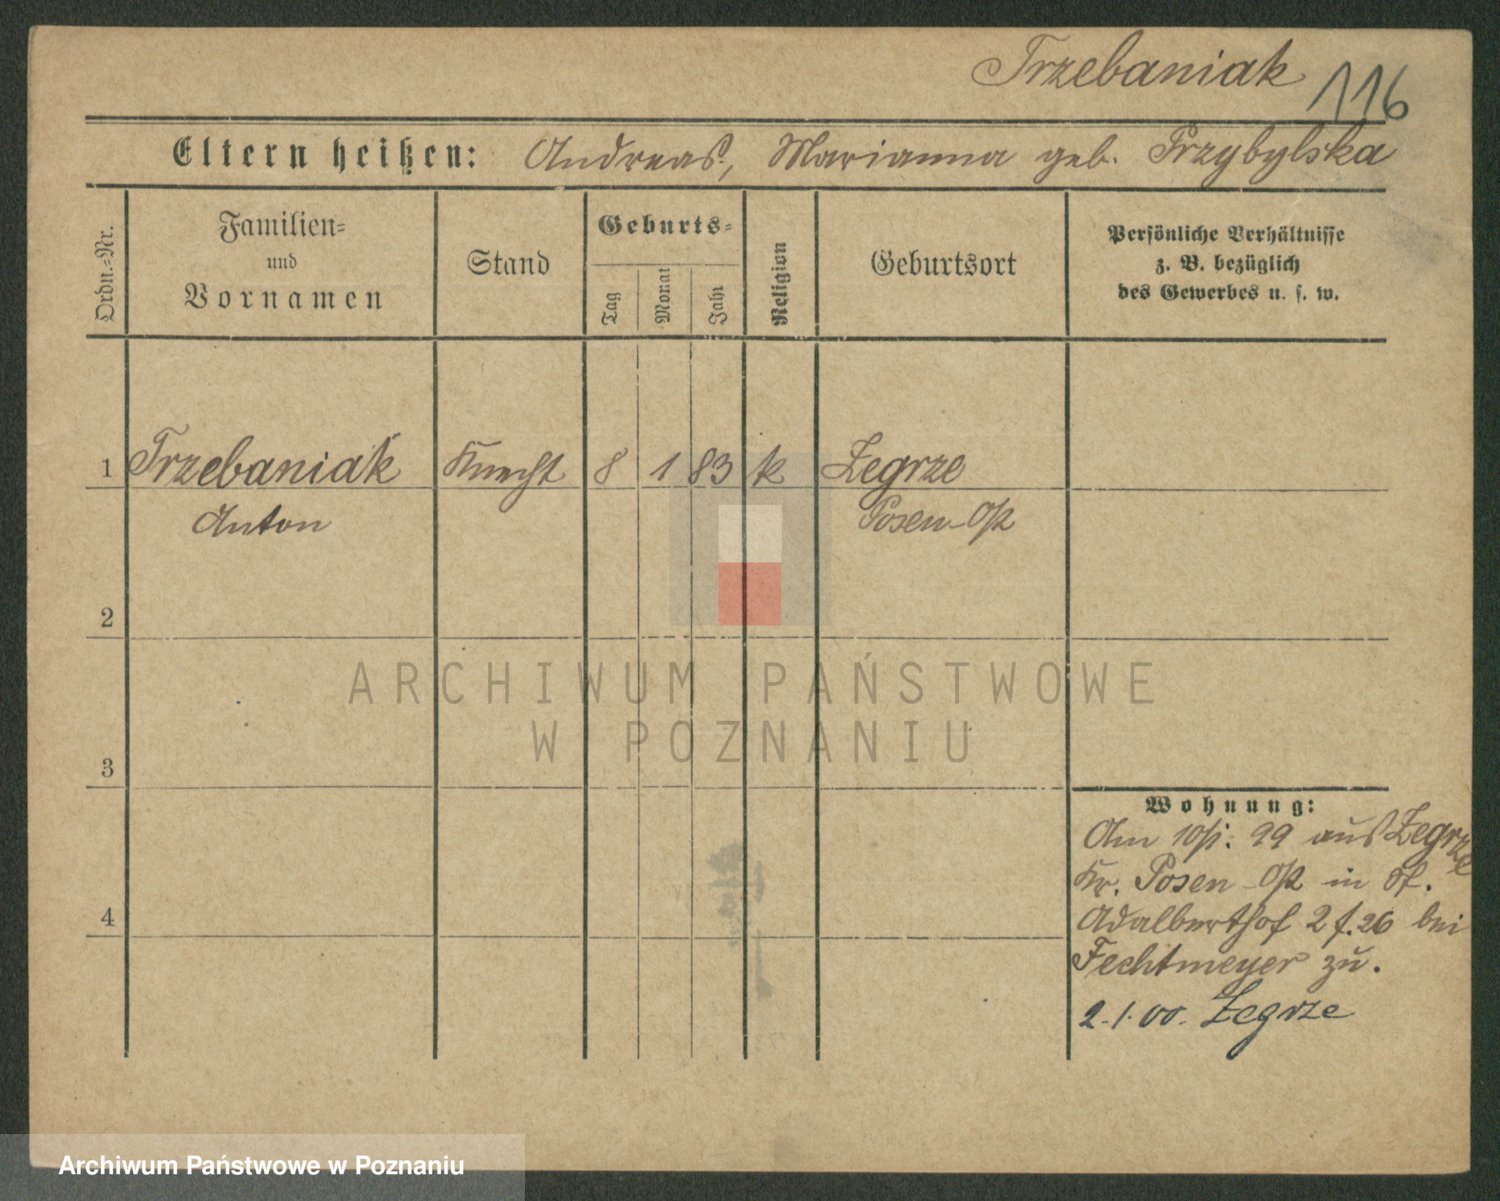 Trzebaniak 116
Eltern heißen: Andreas, Marianna geb. Przybylska
Ordn.-Nr.
Familien-
und
Vornamen
Stand
Geburts-
Tag
Monat
Jahr
Religion
Geburtsort
Persönliche Verhältnisse
z. B. bezüglich
des Gewerbes u. s. w.
1 Trzebaniak Knecht 8 1 83 k Zegrze
Anton Posen-Ost
2
ARCHIWUM PAŃSTWOWE
W POZNANIU
3
Wohnung:
Am 99 aus Zegrze
Kr. Posen-Ost in St.
4
Adalberthof 2 f. 26 bei
Fechtmeyer zu.
2.1.00. Zegrze
Archiwum Państwowe w Poznaniu